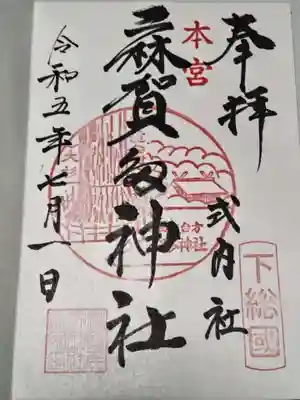 奉拝
本宮
式内社
下総國
麻賀多神社
大杉
台方
令和五年七月一日